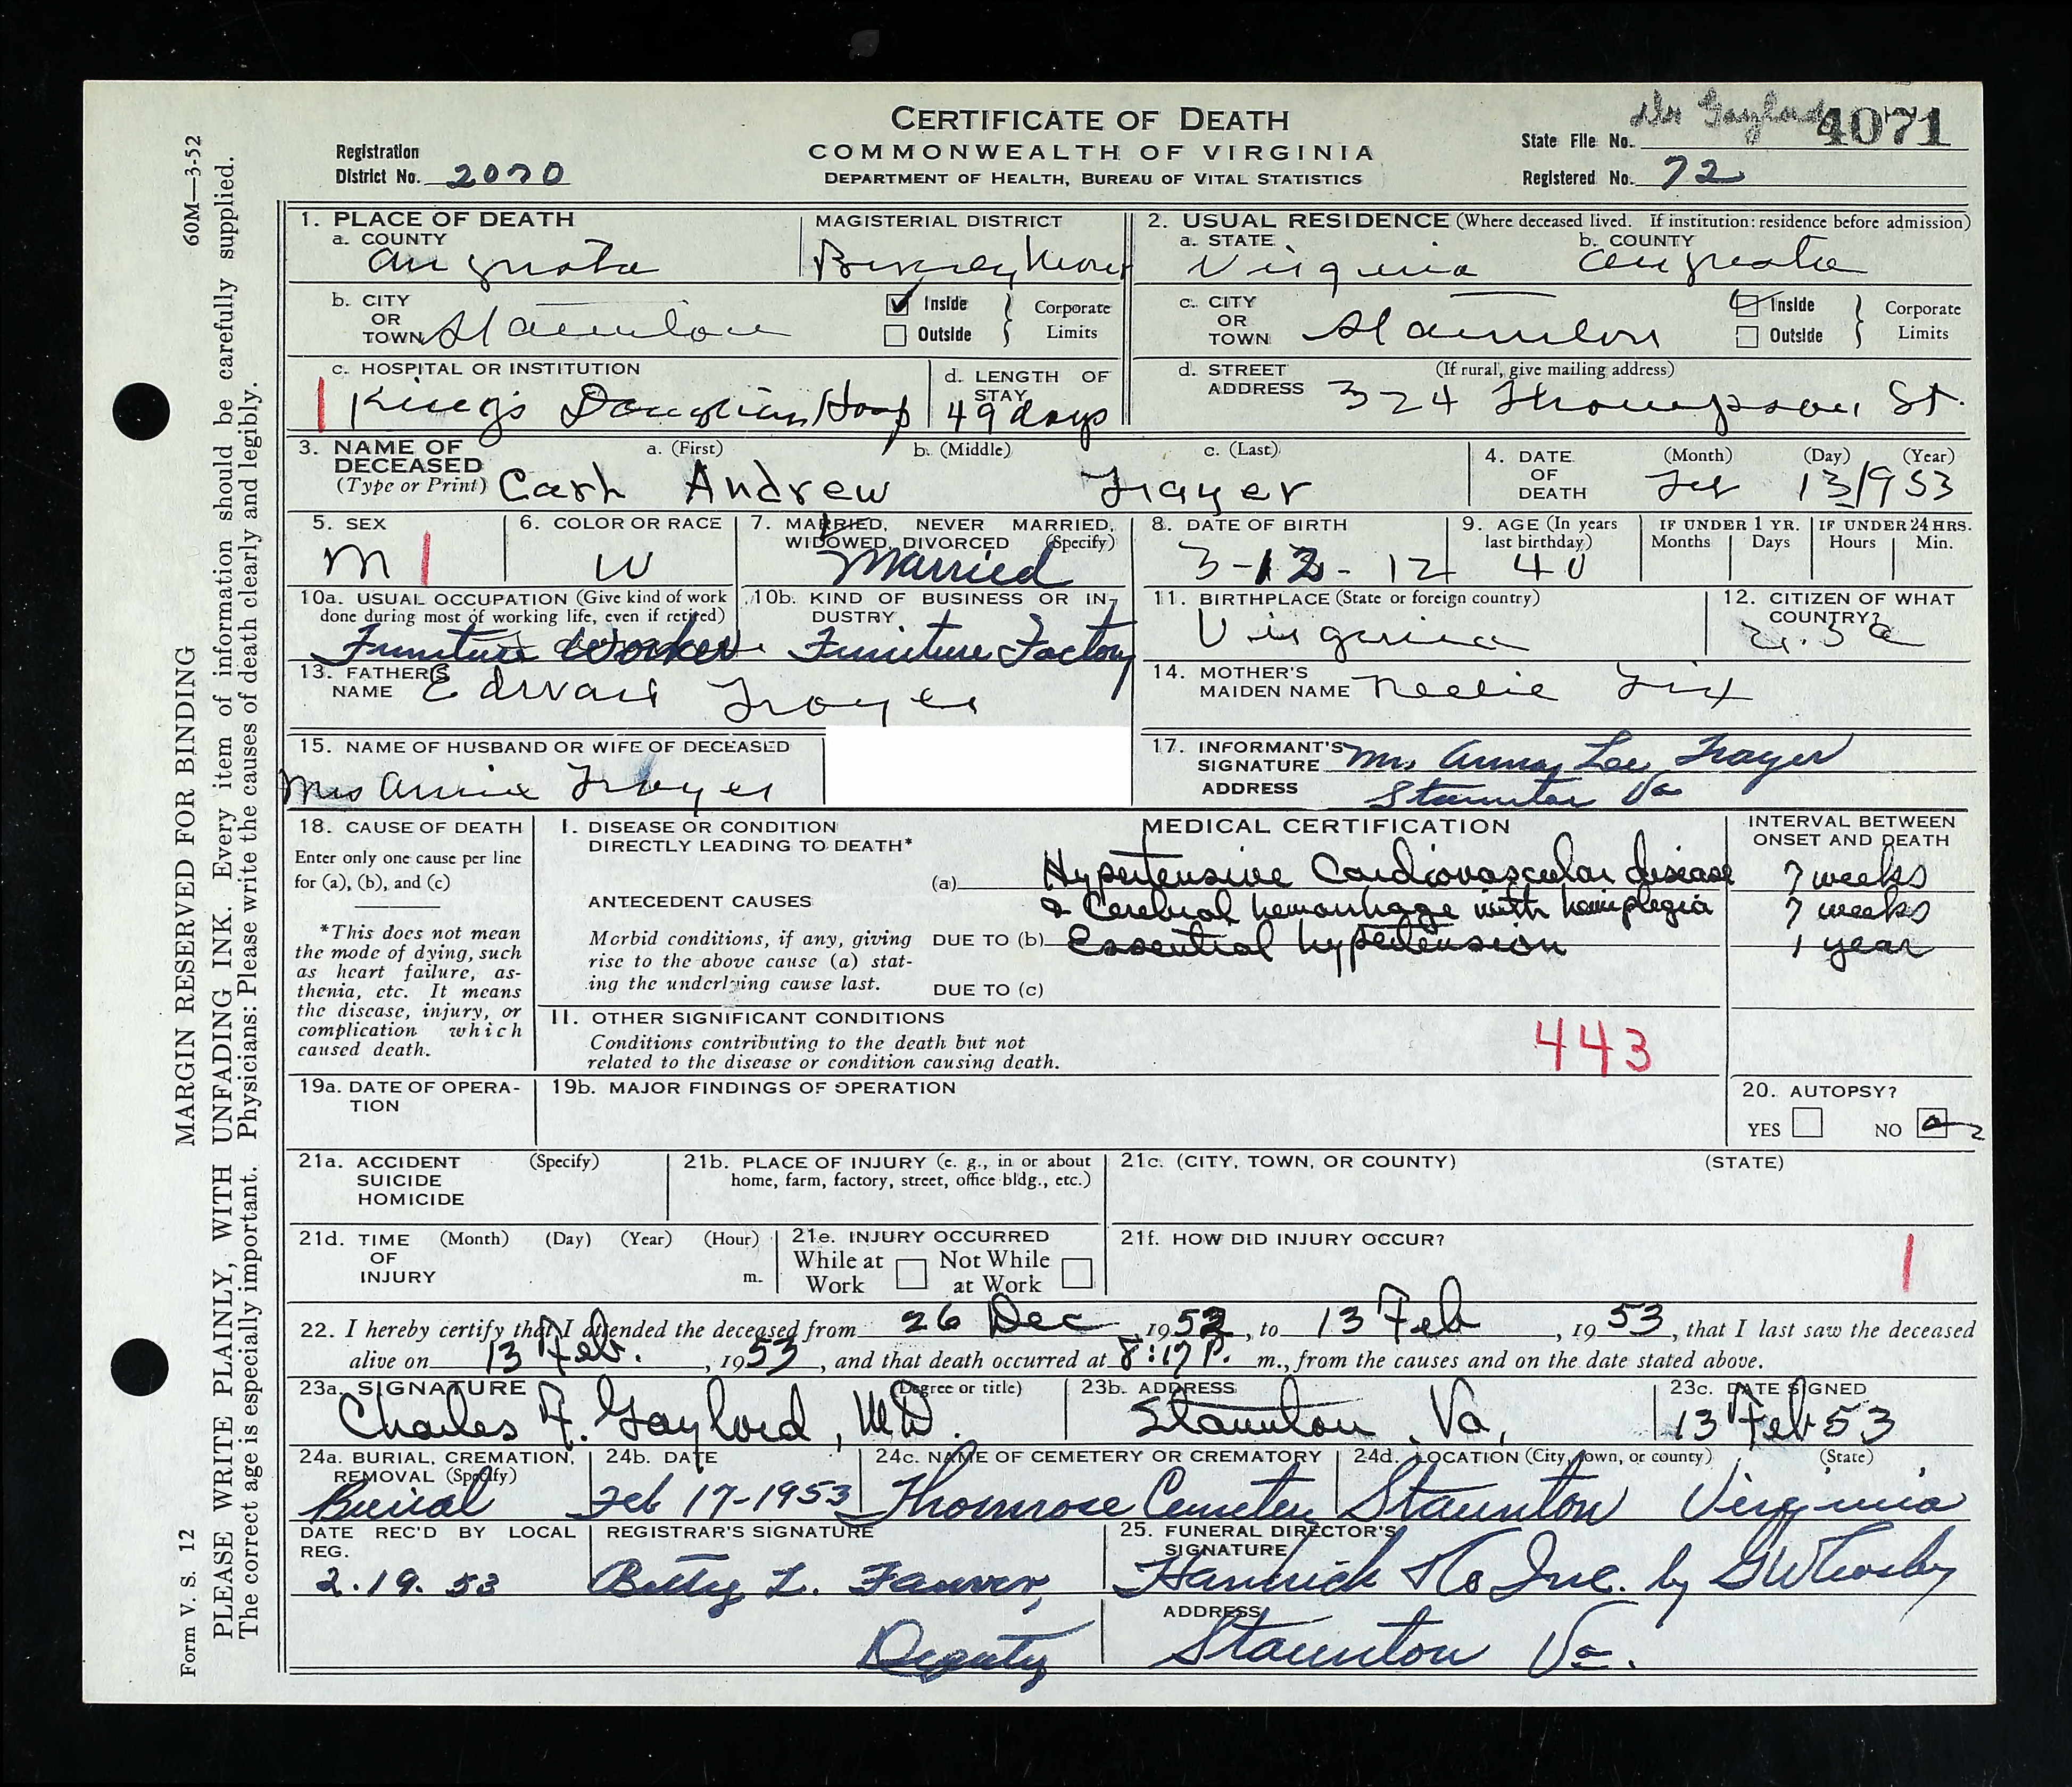 CERTIFICATE OF DEATH
COMMONWEALTH OF VIRGINIA
DEPARTMENT OF HEALTH, BUREAU OF VITAL STATISTICS
Registration District No. 2070
Dr Gaylord
State File No. 4071
Registered No. 72
60M—3-52
MARGIN RESERVED FOR BINDING
PLEASE WRITE PLAINLY, WITH UNFADING INK. Every item of information should be carefully supplied.
The correct age is especially important. Physicians: Please write the causes of death clearly and legibly.
Form V. S. 12
1. PLACE OF DEATH
a. COUNTY Augusta
MAGISTERIAL DISTRICT Beverley Manor
b. CITY OR TOWN Staunton
Inside Outside Corporate Limits
c. HOSPITAL OR INSTITUTION King's Daughters Hosp
d. LENGTH OF STAY 49 days
2. USUAL RESIDENCE (Where deceased lived. If institution: residence before admission)
a. STATE Virginia
b. COUNTY Augusta
c. CITY OR TOWN Staunton
Inside Outside Corporate Limits
d. STREET ADDRESS (If rural, give mailing address) 324 Thompson St.
3. NAME OF DECEASED (Type or Print)
a. (First) b. (Middle) c. (Last)
Cash Andrew Frayer
4. DATE OF DEATH (Month) (Day) (Year)
Feb 13 1953
5. SEX M
6. COLOR OR RACE W
7. MARRIED, NEVER MARRIED, WIDOWED, DIVORCED (Specify) Married
8. DATE OF BIRTH 3-12-12
9. AGE (In years last birthday) 40
IF UNDER 1 YR. Months Days
IF UNDER 24 HRS. Hours Min.
10a. USUAL OCCUPATION (Give kind of work done during most of working life, even if retired)
Furniture Worker
10b. KIND OF BUSINESS OR INDUSTRY
Furniture Factory
11. BIRTHPLACE (State or foreign country) Virginia
12. CITIZEN OF WHAT COUNTRY? U.S.A
13. FATHER'S NAME Edward Frayer
14. MOTHER'S MAIDEN NAME Neelie Fix
15. NAME OF HUSBAND OR WIFE OF DECEASED
Mrs Annie Frayer
17. INFORMANT'S SIGNATURE Mrs Anna Lee Frayer
ADDRESS Staunton Va
18. CAUSE OF DEATH
Enter only one cause per line for (a), (b), and (c)
*This does not mean the mode of dying, such as heart failure, asthenia, etc. It means the disease, injury, or complication which caused death.
MEDICAL CERTIFICATION
INTERVAL BETWEEN ONSET AND DEATH
I. DISEASE OR CONDITION DIRECTLY LEADING TO DEATH*
(a) Hypertensive Cardiovascular disease 7 weeks
& Cerebral hemorrhage with hemiplegia 7 weeks
ANTECEDENT CAUSES
Morbid conditions, if any, giving rise to the above cause (a) stating the underlying cause last.
DUE TO (b) Essential hypertension 1 year
DUE TO (c)
II. OTHER SIGNIFICANT CONDITIONS
Conditions contributing to the death but not related to the disease or condition causing death.
443
19a. DATE OF OPERATION
19b. MAJOR FINDINGS OF OPERATION
20. AUTOPSY?
YES NO
21a. ACCIDENT SUICIDE HOMICIDE (Specify)
21b. PLACE OF INJURY (e. g., in or about home, farm, factory, street, office bldg., etc.)
21c. (CITY, TOWN, OR COUNTY) (STATE)
21d. TIME OF INJURY (Month) (Day) (Year) (Hour) m.
21e. INJURY OCCURRED
While at Work Not While at Work
21f. HOW DID INJURY OCCUR?
22. I hereby certify that I attended the deceased from 26 Dec, 1952, to 13 Feb, 1953, that I last saw the deceased
alive on 13 Feb., 1953, and that death occurred at 8:17 P. m., from the causes and on the date stated above.
23a. SIGNATURE (Degree or title)
Charles F. Gaylord, M.D.
23b. ADDRESS
Staunton, Va.
23c. DATE SIGNED
13 Feb 53
24a. BURIAL, CREMATION, REMOVAL (Specify)
Burial
24b. DATE
Feb 17-1953
24c. NAME OF CEMETERY OR CREMATORY
Thornrose Cemetery
24d. LOCATION (City, town, or county) (State)
Staunton Virginia
DATE REC'D BY LOCAL REG.
2.19.53
REGISTRAR'S SIGNATURE
Betty L. Fauver,
Deputy
25. FUNERAL DIRECTOR'S SIGNATURE
Hamrick & Co Inc. by
ADDRESS
Staunton Va.